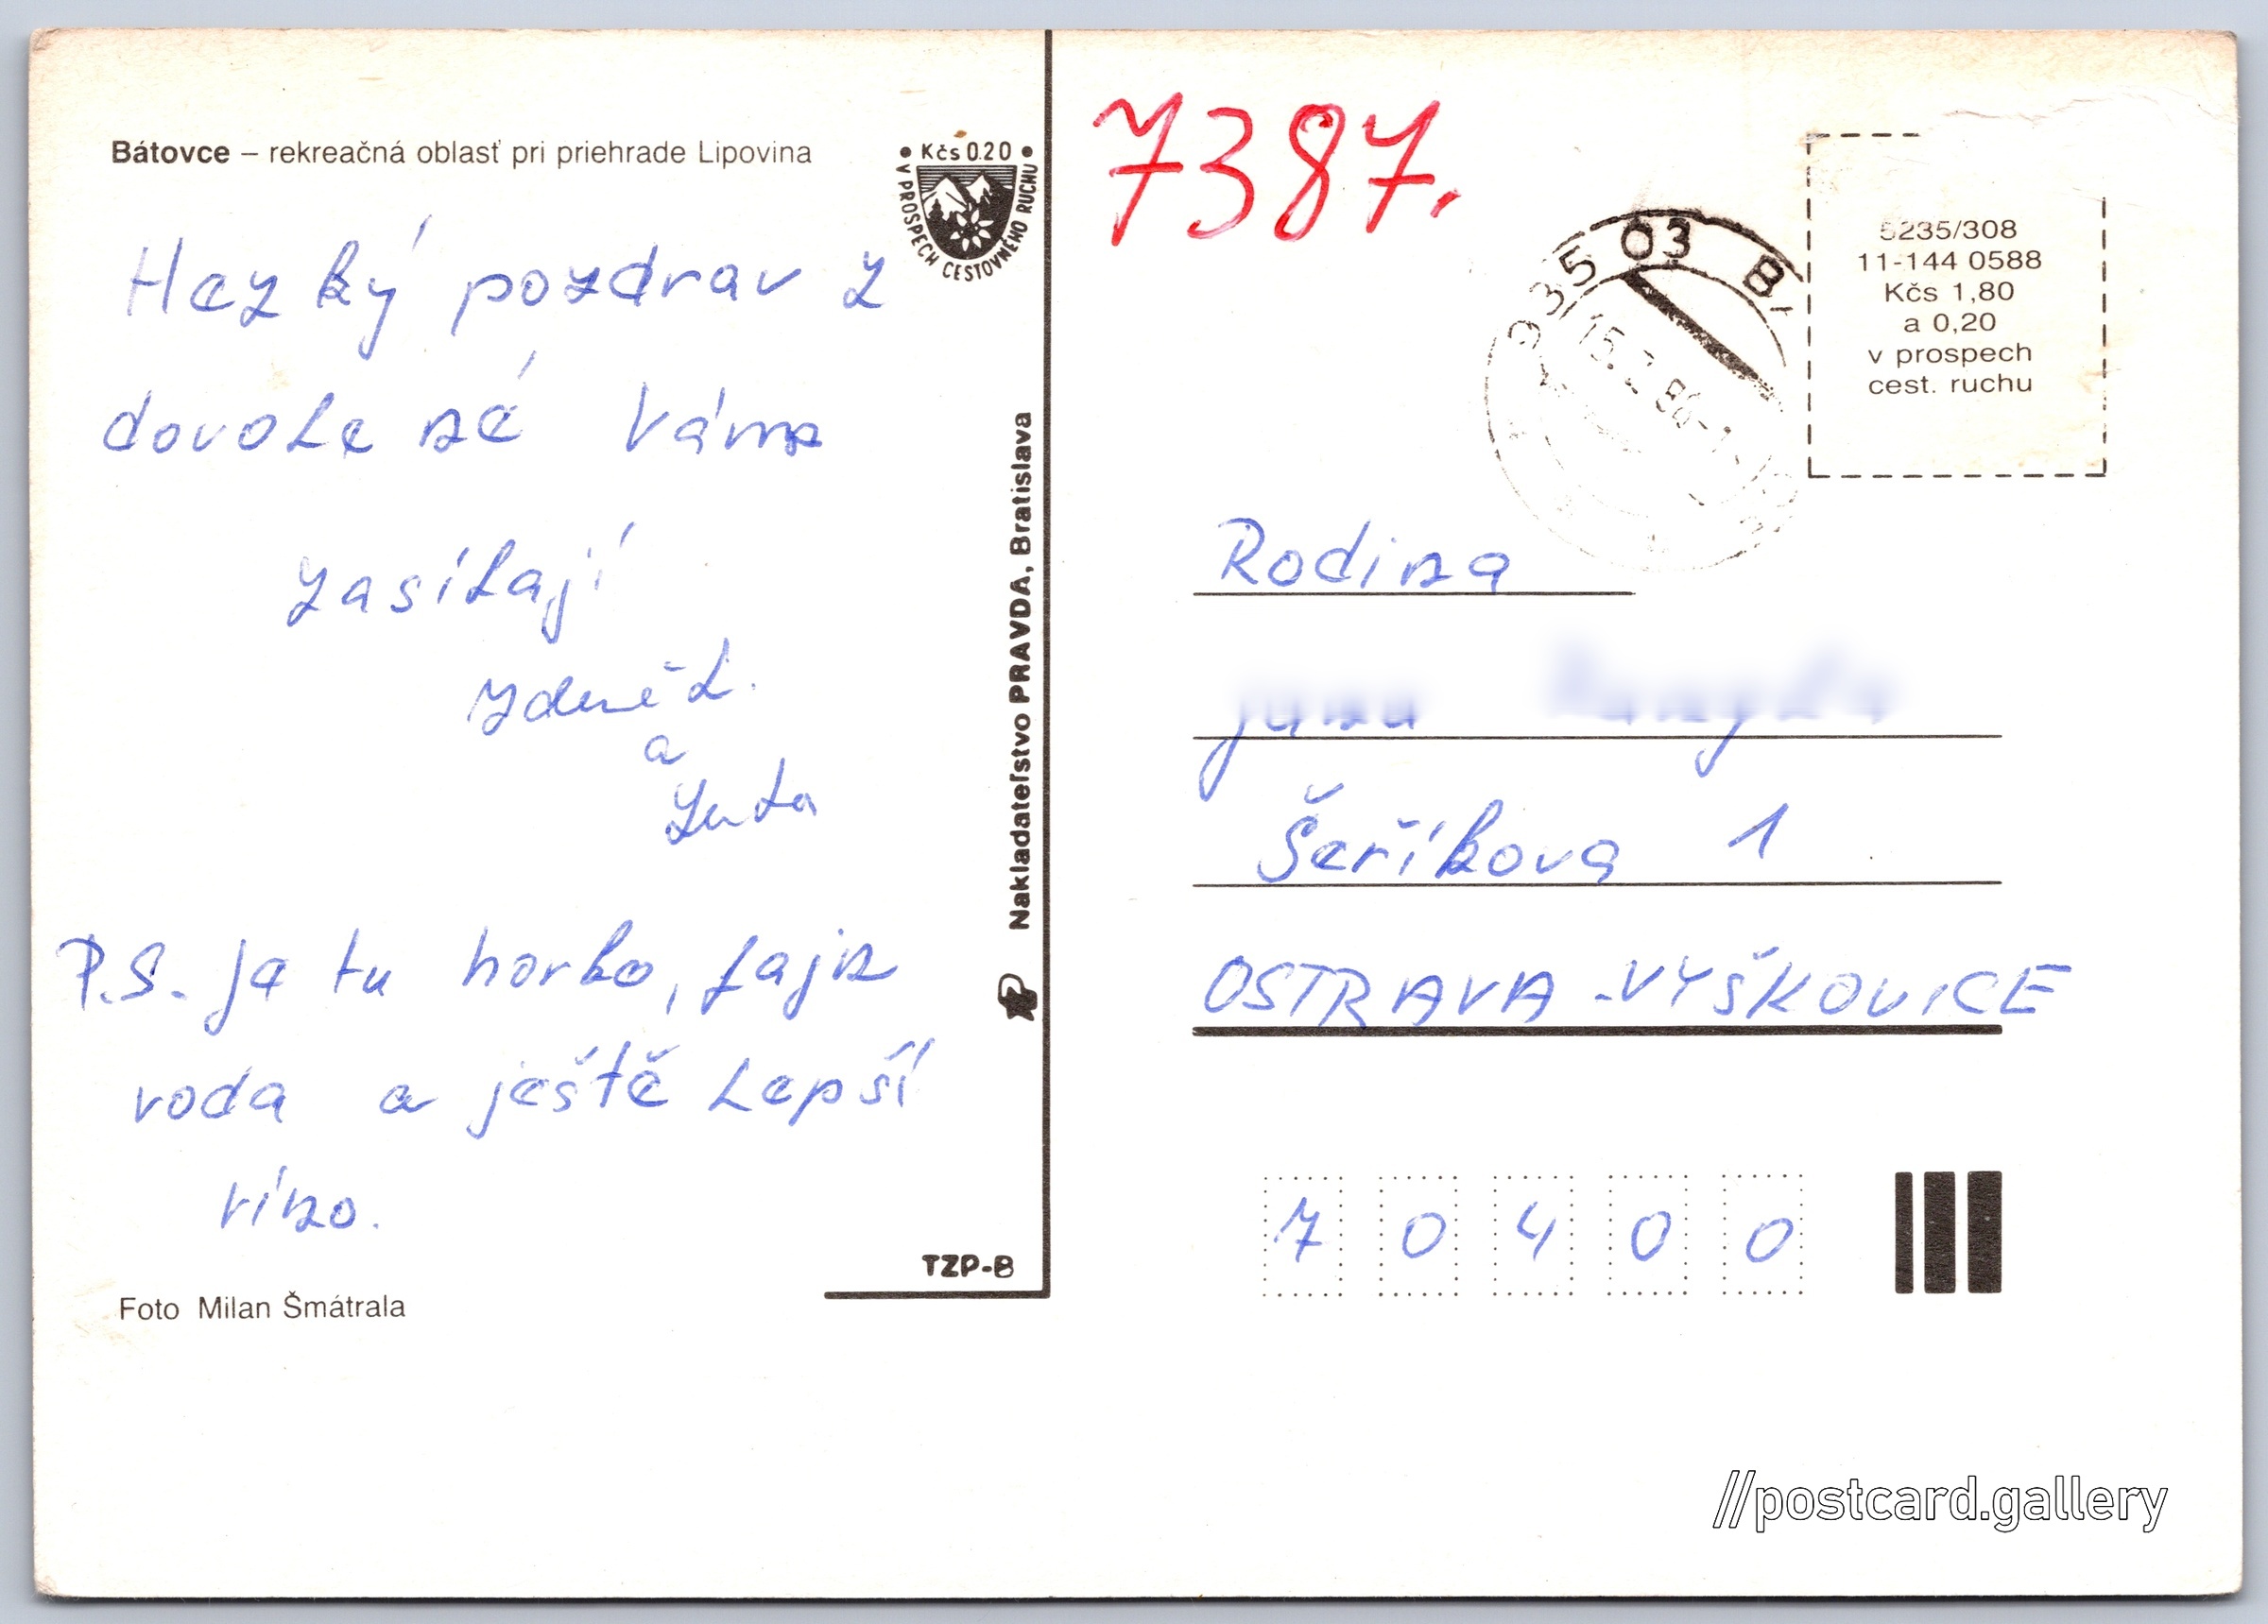 Bátovce – rekreačná oblasť pri priehrade Lipovina
• Kčs 0.20 •
V PROSPECH CESTOVNÉHO RUCHU
Hezký pozdrav z
dovolené Vám
zasílají
Zdeněk
a
P.S. je tu horko, fajn
voda a ještě lepší
víno.
TZP-B
Foto Milan Šmátrala
Nakladateľstvo PRAVDA, Bratislava
7387.
935 03 B
5235/308
11-144 0588
Kčs 1,80
a 0,20
v prospech
cest. ruchu
Rodina
Šeříkova 1
OSTRAVA-VYŠKOVICE
7 0 4 0 0
//postcard.gallery